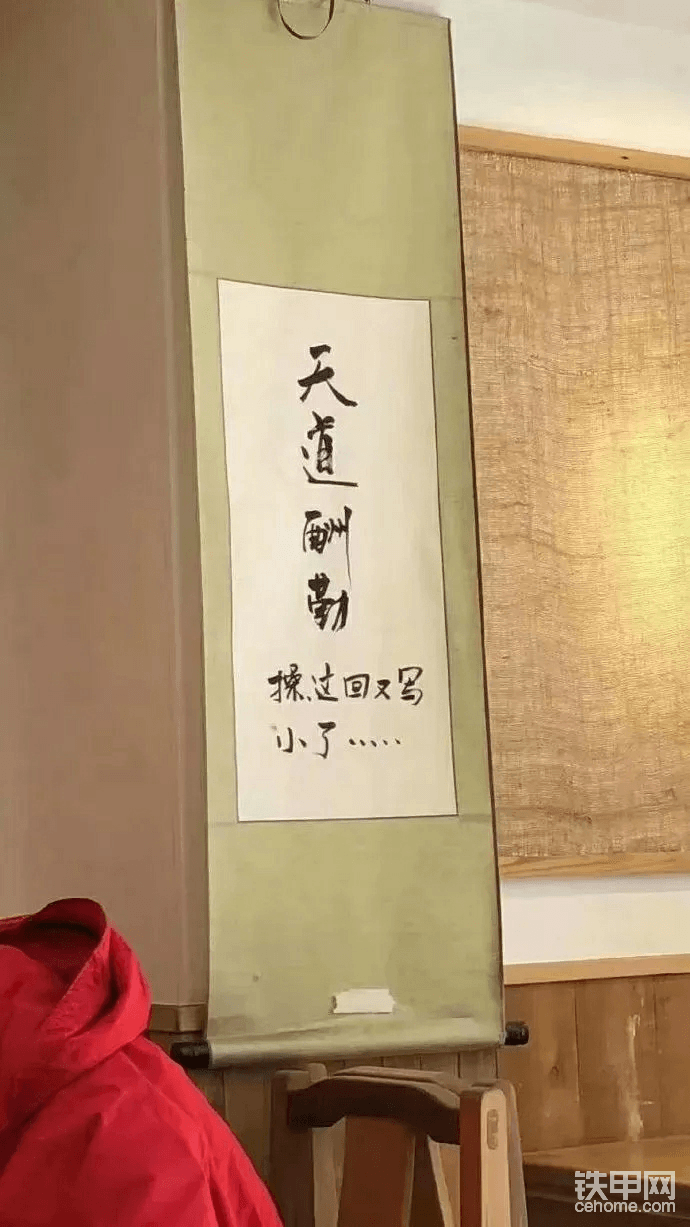 天道酬勤
操.这回又写
小了.....
铁甲网
cehome.com